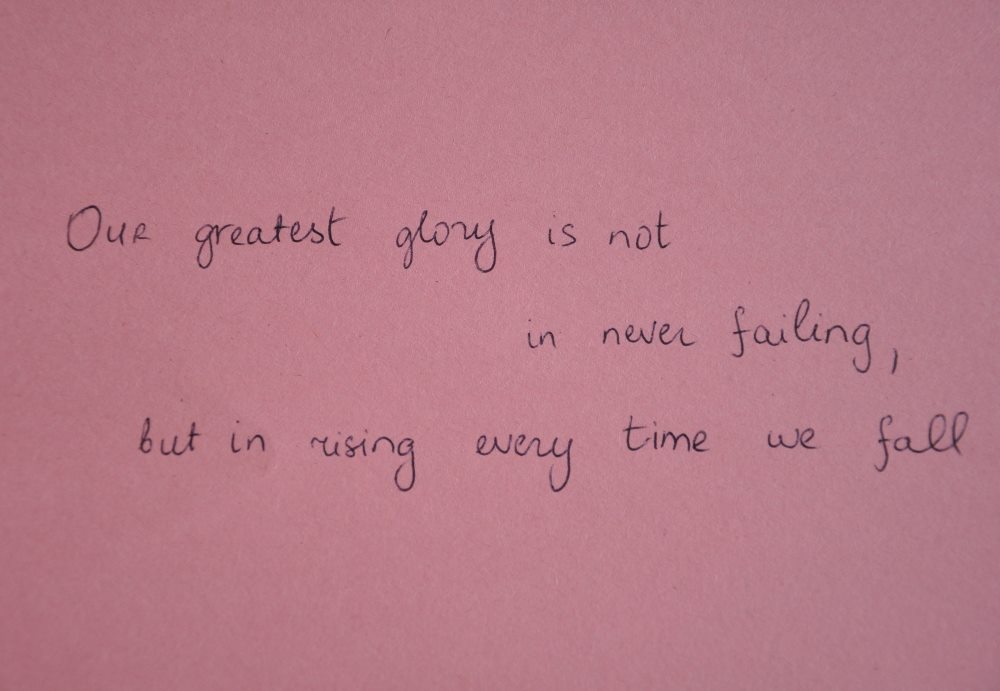 Our greatest glory is not
in never failing,
but in rising every time we fall